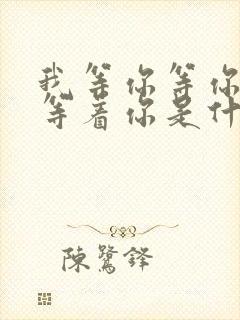 我等你等你
等着你是什
陳鷺鋒